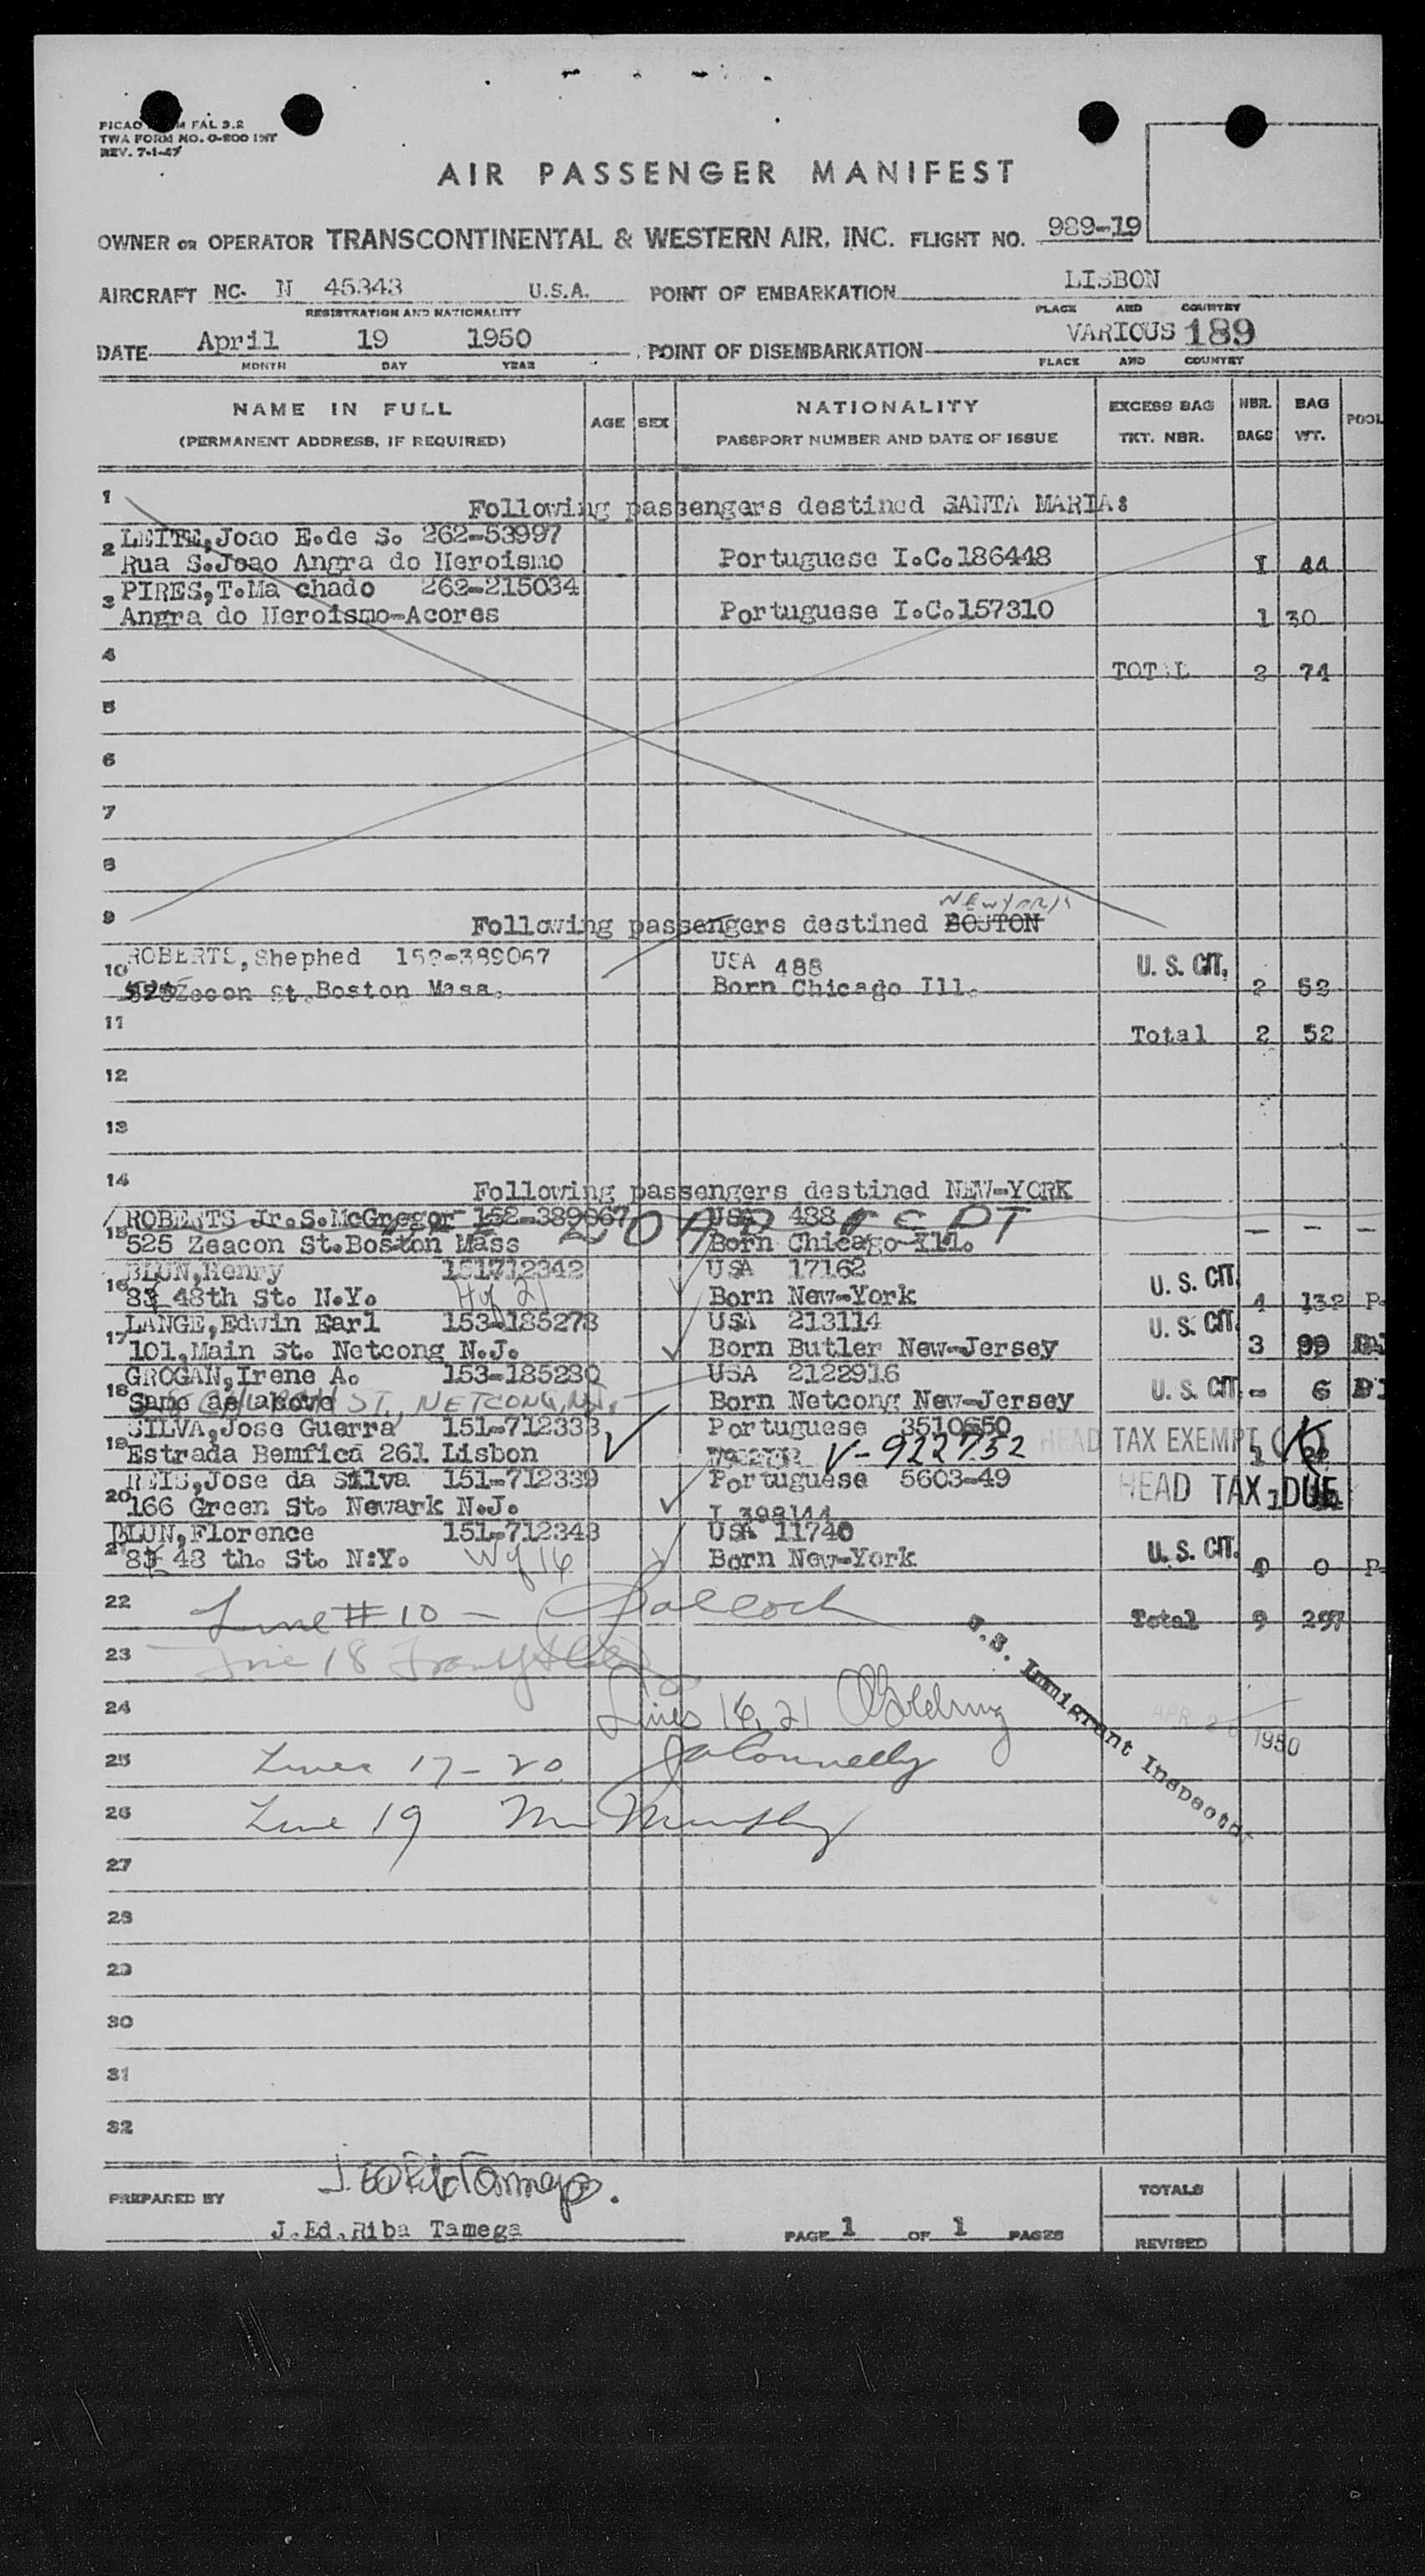 PICAO FAL 3.2
TWA FORM NO. O-800 INT
REV. 7-1-47
AIR PASSENGER MANIFEST
OWNER OR OPERATOR TRANSCONTINENTAL & WESTERN AIR, INC. FLIGHT NO. 989-19
AIRCRAFT NC- N 45343 U.S.A. POINT OF EMBARKATION LISBON
REGISTRATION AND NATIONALITY PLACE AND COUNTRY
DATE April 19 1950 POINT OF DISEMBARKATION VARIOUS 189
MONTH DAY YEAR PLACE AND COUNTRY
NAME IN FULL AGE SEX NATIONALITY EXCESS BAG NBR. BAG POOL
(PERMANENT ADDRESS, IF REQUIRED) PASSPORT NUMBER AND DATE OF ISSUE TKT. NBR. BAGS WT.
1 Following passengers destined SANTA MARIA:
2 LEITE,Joao E.de S. 262-53997
Rua S.Joao Angra do Heroismo Portuguese I.C.186448 1 44
3 PIRES,T.Ma chado 262-215034
Angra do Heroismo-Acores Portuguese I.C.157310 1 30
4 TOTAL 2 74
5
6
7
8
9 NEW YORK
Following passengers destined BOSTON
10 ROBERTS,Shephed 152-389067 USA 488 U. S. CIT.
525 Zeacon St.Boston Mass. Born Chicago Ill. 2 52
11 Total 2 52
12
13
14 Following passengers destined NEW-YORK
15 ROBERTS Jr.S.McGregor 152-389067 USA 488
525 Zeacon St.Boston Mass Born Chicago Ill. - - -
16 BLUN,Henry 151712342 USA 17162 U. S. CIT.
48th St. N.Y. Born New-York 4 132 P-
17 LANGE,Edwin Earl 153-185278 USA 213114 U. S. CIT.
101,Main St. Netcong N.J. Born Butler New-Jersey 3 99
18 GROGAN,Irene A. 153-185280 USA 2122916 U. S. CIT.
Same as above ST, NETCONG, N.J. Born Netcong New-Jersey - 6
19 SILVA,Jose Guerra 151-712338 Portuguese 3510650 HEAD TAX EXEMPT
Estrada Bemfica 261 Lisbon V-922732 1
20 REIS,Jose da Silva 151-712339 Portuguese 5603-49 HEAD TAX DUE
166 Green St. Newark N.J. I 398144 1
21 BLUN,Florence 151-712343 USA 11740 U. S. CIT.
48 th. St. N:Y. Born New-York 0 0 P-
22 Line # 10 - Total 9 297
23 Line 18
24 Lines 16, 21 Golding
U.S. Immigrant Inspector
APR 20 1950
25 Lines 17-20 Connelly
26 Line 19 Murphy
27
28
29
30
31
32
PREPARED BY J. Ed. Riba Tamega. TOTALS
J.Ed.Riba Tamega PAGE 1 OF 1 PAGES REVISED